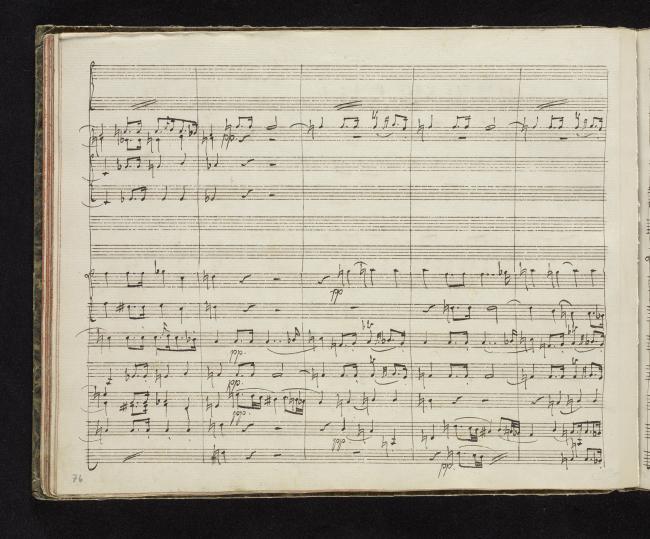 pp
pp
pp.
pp.
pp.
pp
pp.
76